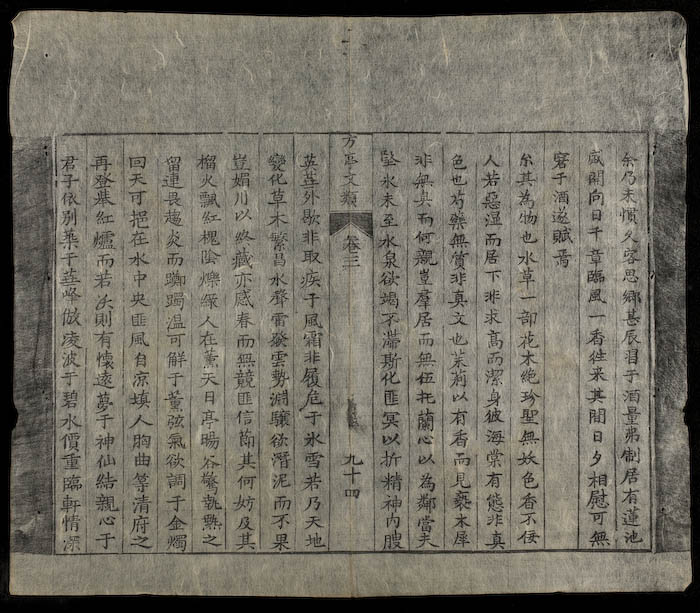 余乃未慣久客思鄉甚辰泪于酒量弗制居有蓮池
盛開向日千章臨風一香徃來其間日夕相慰可無
窘于酒遂賦焉
余其為物也水草一部花木絶珍聖無妖色香不侫
人若惡濕而居下非求高而潔身彼海棠有態非真
色也芍藥無質非真文也茉莉以有香而見褻木犀
非無真而何親豈羣居而無伍托蘭心以為鄰當夫
墜氷未至水泉欲竭不滯斯化匪冥以折精神内腴
方亭文類
卷三
九十四
英莖外歇非取疾于風霜非履危于氷雪若乃天地
變化草木繁昌水聲雷發雲勢淵驤欲潛泥而不果
豈媚川以終藏亦感春而無競匪信節其何妨及其
榴火飄紅槐陰爍緑人在薰天日亭暘谷驚執熱之
留連畏趨炎而躑躅温可解于薰弦氣欲調于金燭
回天可挹在水中央匪風自凉塡人胸曲等清府之
再登藜紅爐而若次則有懷遂夢于神仙結親心于
君子依別葉于蓮峰倣凌波于碧水價重臨軒情深